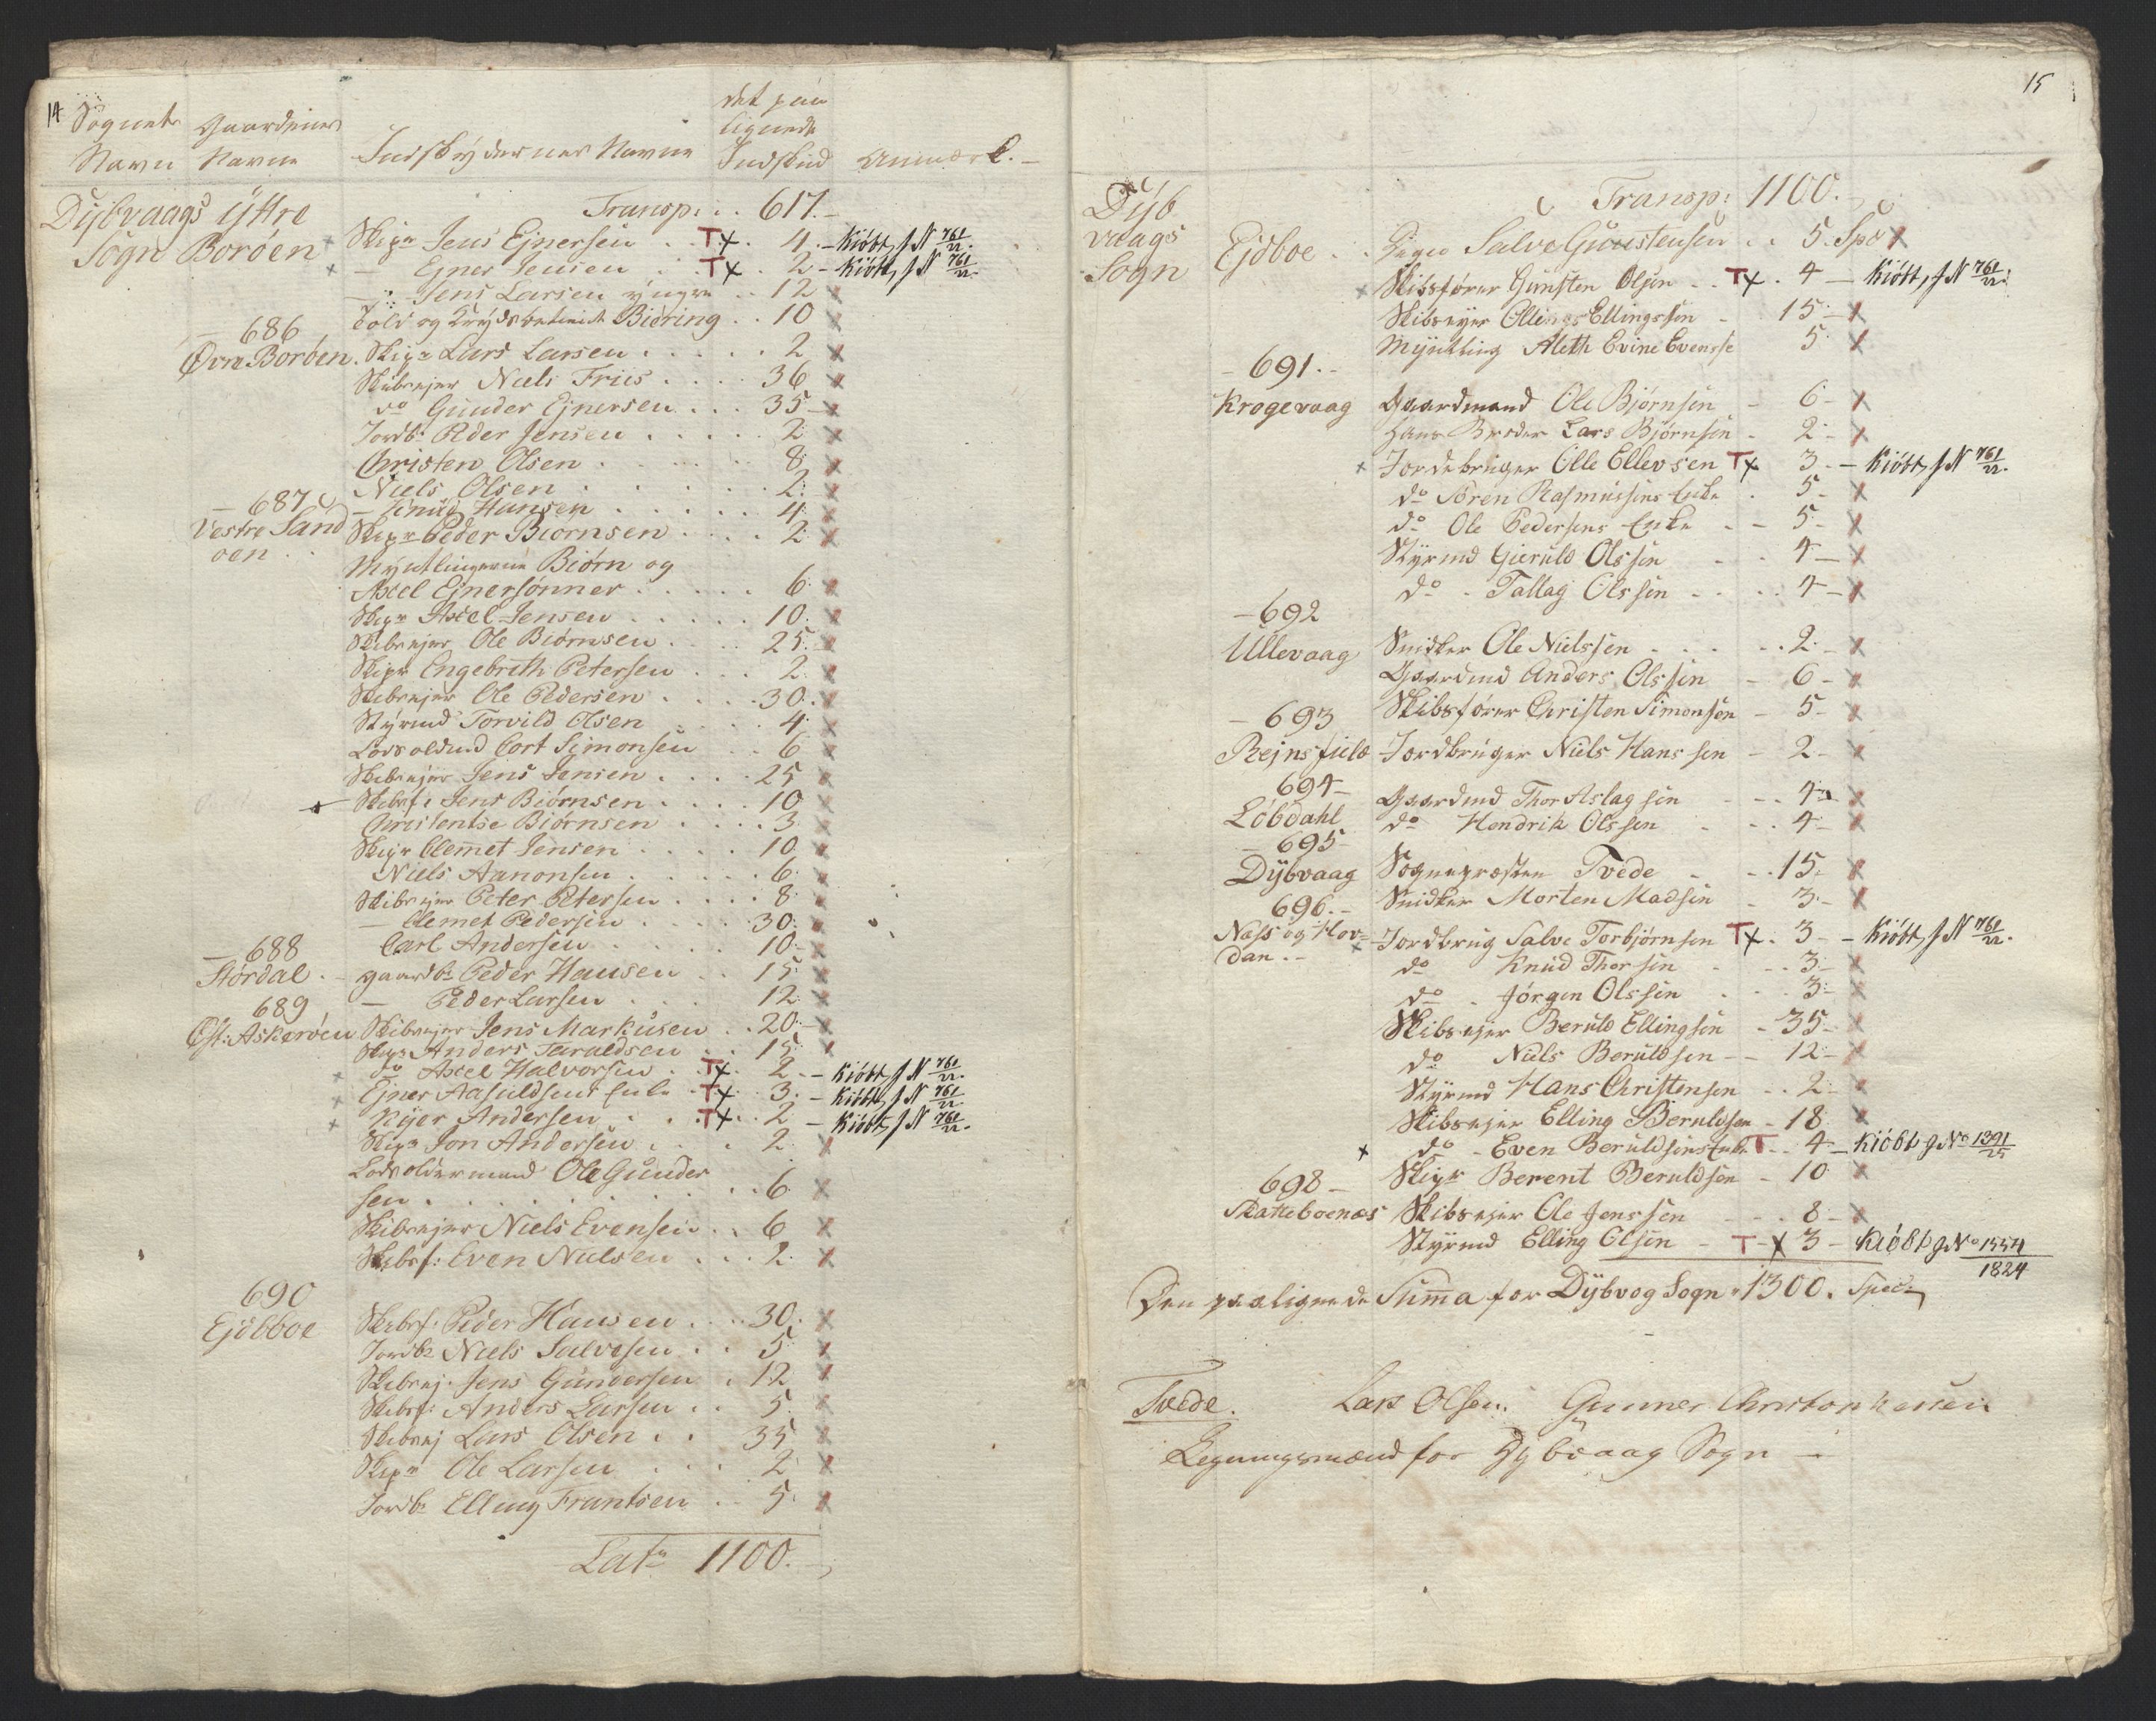 14
Sognets Gaardenes det paa
lignede
Navn Navne Indskydernes Navne Indskud Anmærk. –
Dybvaags Ÿttre Transp: . . 617. –
Sogn Borøen × Skipr Jens Ejnersen . . T × . 4. – Kiöbt, J N 761/22.
× – Ejner Jensen . . T × . 2 – Kiöbt, J N 761/22.
– Jens Larsen ÿngre . . 12
– 686 Told og Krÿdsbetient Bidring . . 10
Øvre Borøen. Skipr Lars Larsen . . . . . 2
Skibsejer Niels Friis . . . . 36
do Gunder Ejnersen . . . 35 –
Jordbr Peder Jensen . . . . . 2
Christen Olsen . . . . . 8
Niels Olsen . . . . . 2
– 687 – Knud Hansen . . . . . 4
Vestre Sand Skipr Peder Biørnsen . . . . 2
øen . . Mÿntlingerne Biørn og
Axel Ejnersønner . . . . . 6
Skipr Axel Jensen . . . . . 10
Skibsejer Ole Biørnsen . . . . 25
Skipr Engebreth Petersen . . . 2
Skibsejer Ole Pedersen . . . . 30
Stÿrmd Torvild Olsen . . . 4
Lodsoldmd Cort Simonsen . . 6
Skibsejer Jens Jensen . . . . 25
Skibsf: Jens Biørnsen . . . . 10
Christentse Biørnsen . . . . 3
Skipr Clemet Jensen . . . . 10
Niels Aanonsen . . . . . 6
Skibsejer Peter Petersen . . . . 8
– Clemet Pedersen . . . . 30
– 688 Carl Andersen . . . . 10
Stórdal . – gaardbr Peder Hansen . . 15
689 – Peder Larsen . . . 12
Øst: Askerøen Skibsejer Jens Markusen . . 20
Skipr Anders Taraldsen . . 15
× do Axel Halvorsen . . T × . 2 – Kiöbt, J N 761/22.
× Ejner Aasuldsens Enke . T × . 3 – Kiöbt, J N 761/22.
× Kÿer Andersen . . . T × . . 2 – Kiöbt, J N 761/22.
Skipr Jon Andersen . . . 2
Lodsoldermand Ole Gunder
sen . . . . . . . . . 6
Skibsejer Niels Evensen . . 6
Skibsf: Even Nielsen . . . 2
690
Ejdbboe Skibsf: Peder Hansen . . . 30
Jordbr Niels Salvesen . . 5
Skibsej: Jens Gundersen . 12
Skibsf: Anders Larsen . . 5
Skibsej Lars Olsen . . 35
Skipr Ole Larsen . . . 2
Jordbr Elling Frantsen . . 5
Latr 1100. –
15
Dÿb Transp: 1100. –
vaags Ejdboe . . Pigen Salve Gunstensen . . 5. Spec
Sogn × Skibsfører Gunsten Olsen . . T × . 4 – Kiöbt, J N 761/22.
Skibsejer Ollings Ellingssen – 15 –
– 691. – Mÿntling Aleth Evine Evensse 5
Krogevaag Gaardmand Ole Bjørnsen – 6 –
Hans Broder Lars Bjørnsen – 2 –
× Jordebruger Olle Ellevsen T × 3. – Kiöbt, J N 761/22.
do Sören Rasmussens Enke . 5 –
do Ole Pedersens Enke . – 5 –
Stÿrmd Gieruld Olssen – . 4 –
do . Tallag Olssen . . . . 4 –
– 692
Ullevaag Snidker Ole Nielssen . . . . . 2 –
Gaardmd Anders Olssen – 6 –
– 693 Skibsfører Christen Simonsen – 5 –
Rejnsfield Jordbruger Niels Hanssen – 2 –
694 – Gaardmd Thor Aslagsen – . . 4
Løbdahl do Hendrik Olssen . . . 4 –
– 695 –
Dÿbvaag Sognepræsten Tvede . . . 15
696. – Snidker Morten Madsen – 3 –
Næss og Hov= × Jordbrug Salve Torbjørnsen T × . 3 – Kiöbt, J N 761/22.
dan . – do Knud Thorsen . . . 3 –
do . Jørgen Olssen . . . 3 –
Skibsejer Beruld Ellingsen – 35 –
do Niels Beruldsen – – 12 –
Stÿrmd Hans Christensen . . 2 –
Skibsejer Elling Beruldsen – 18
× do . Even Beruldsens Enke T . . 4 – Kiöbt J No 1391/25
698 – Skipr Berent Beruldsen – 10
Skatteboenæs Skibsejer Ole Jenssen – . . 8 –
Stÿrmd Elling Olsen – T – × 3 – Kiöbt J No 1554/1824
Den paalignede Suma for Dÿbvog Sogn 1300. Speci
Tvede. Lars Olsen Gunner Christophersen
Legningsmænd for Dybvaag Sogn –